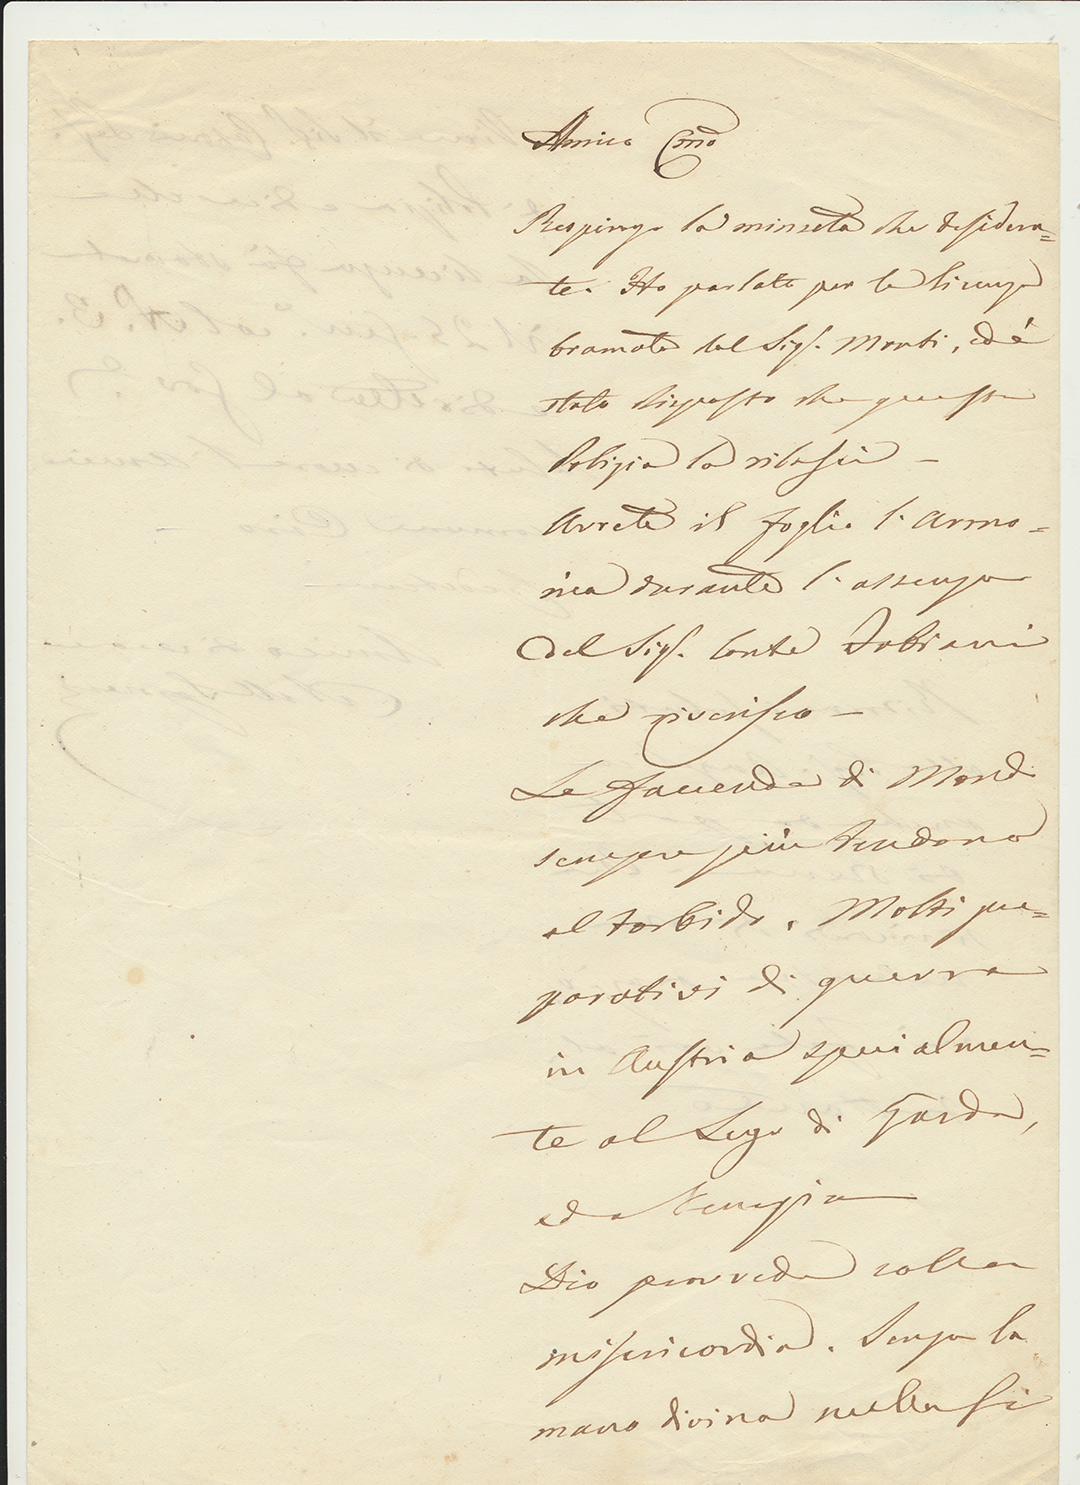 Amico Cmo
Respingo la minuta che desidera=
te. Ho parlato per la licenza
bramata dal Sigr. Monti, ed è
stato disposto che questa
Polizia la rilasci –
Avrete il foglio l'Armo=
nia durante l'assenza
del Sigr. Conte Fabiani
che riverisco –
Le faccende di Mond
sempre più tendono
al torbido. Molti pre=
parativi di guerra
in Austria specialmen=
te al Lago di Garda,
ed a Venezia
Dio provveda colla
misericordia. Senza la
mano divina nulla si